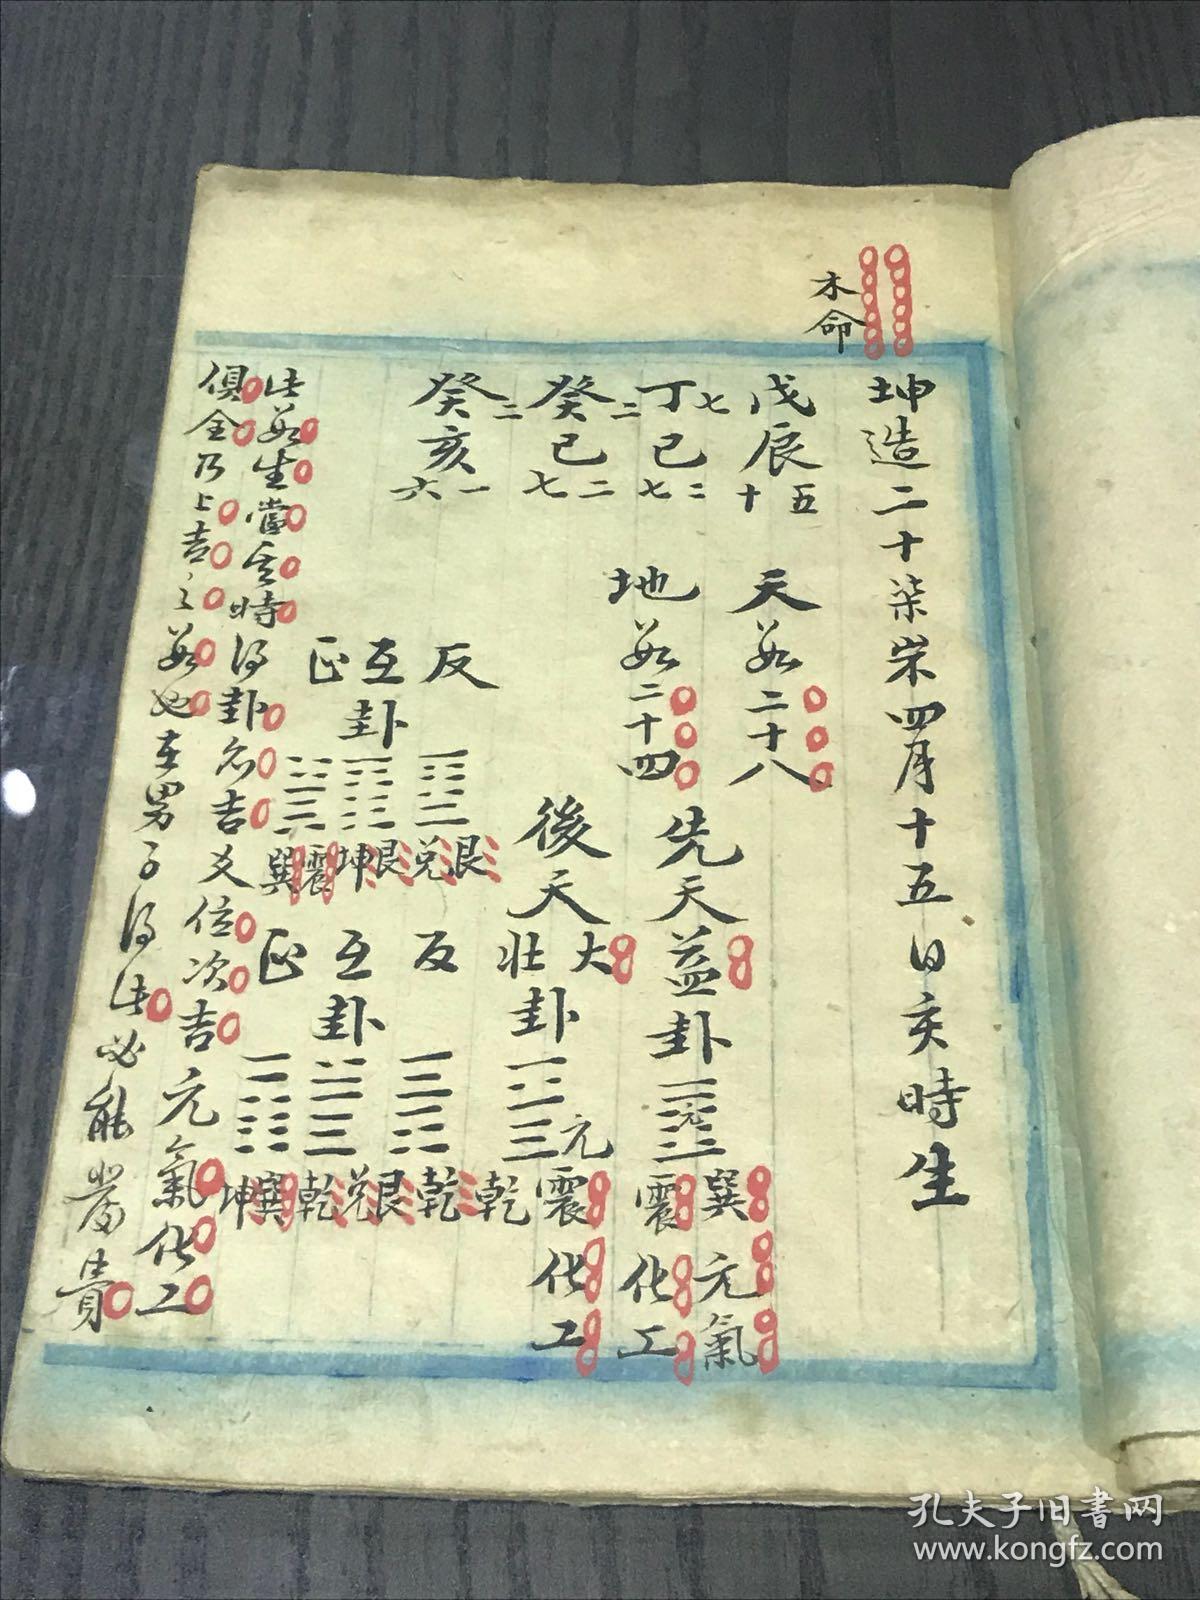 木命
坤造二十柒岽四月十五日亥時生
戊辰 五十
丁七巳 二七
癸二巳 二七
癸二亥 一六
天数二十八
地数二十四
先天益卦 元 巽元氣 震化工
後天大壯卦 元 震化工 乾
反 艮兌
互卦 艮坤
正 震巽
反 乾艮
互卦 兌乾
正 巽坤
此数生當其時得卦名吉爻位次吉元氣化工
俱全乃上吉之数也在男子得此必能當貴
孔夫子旧書网
www.kongfz.com